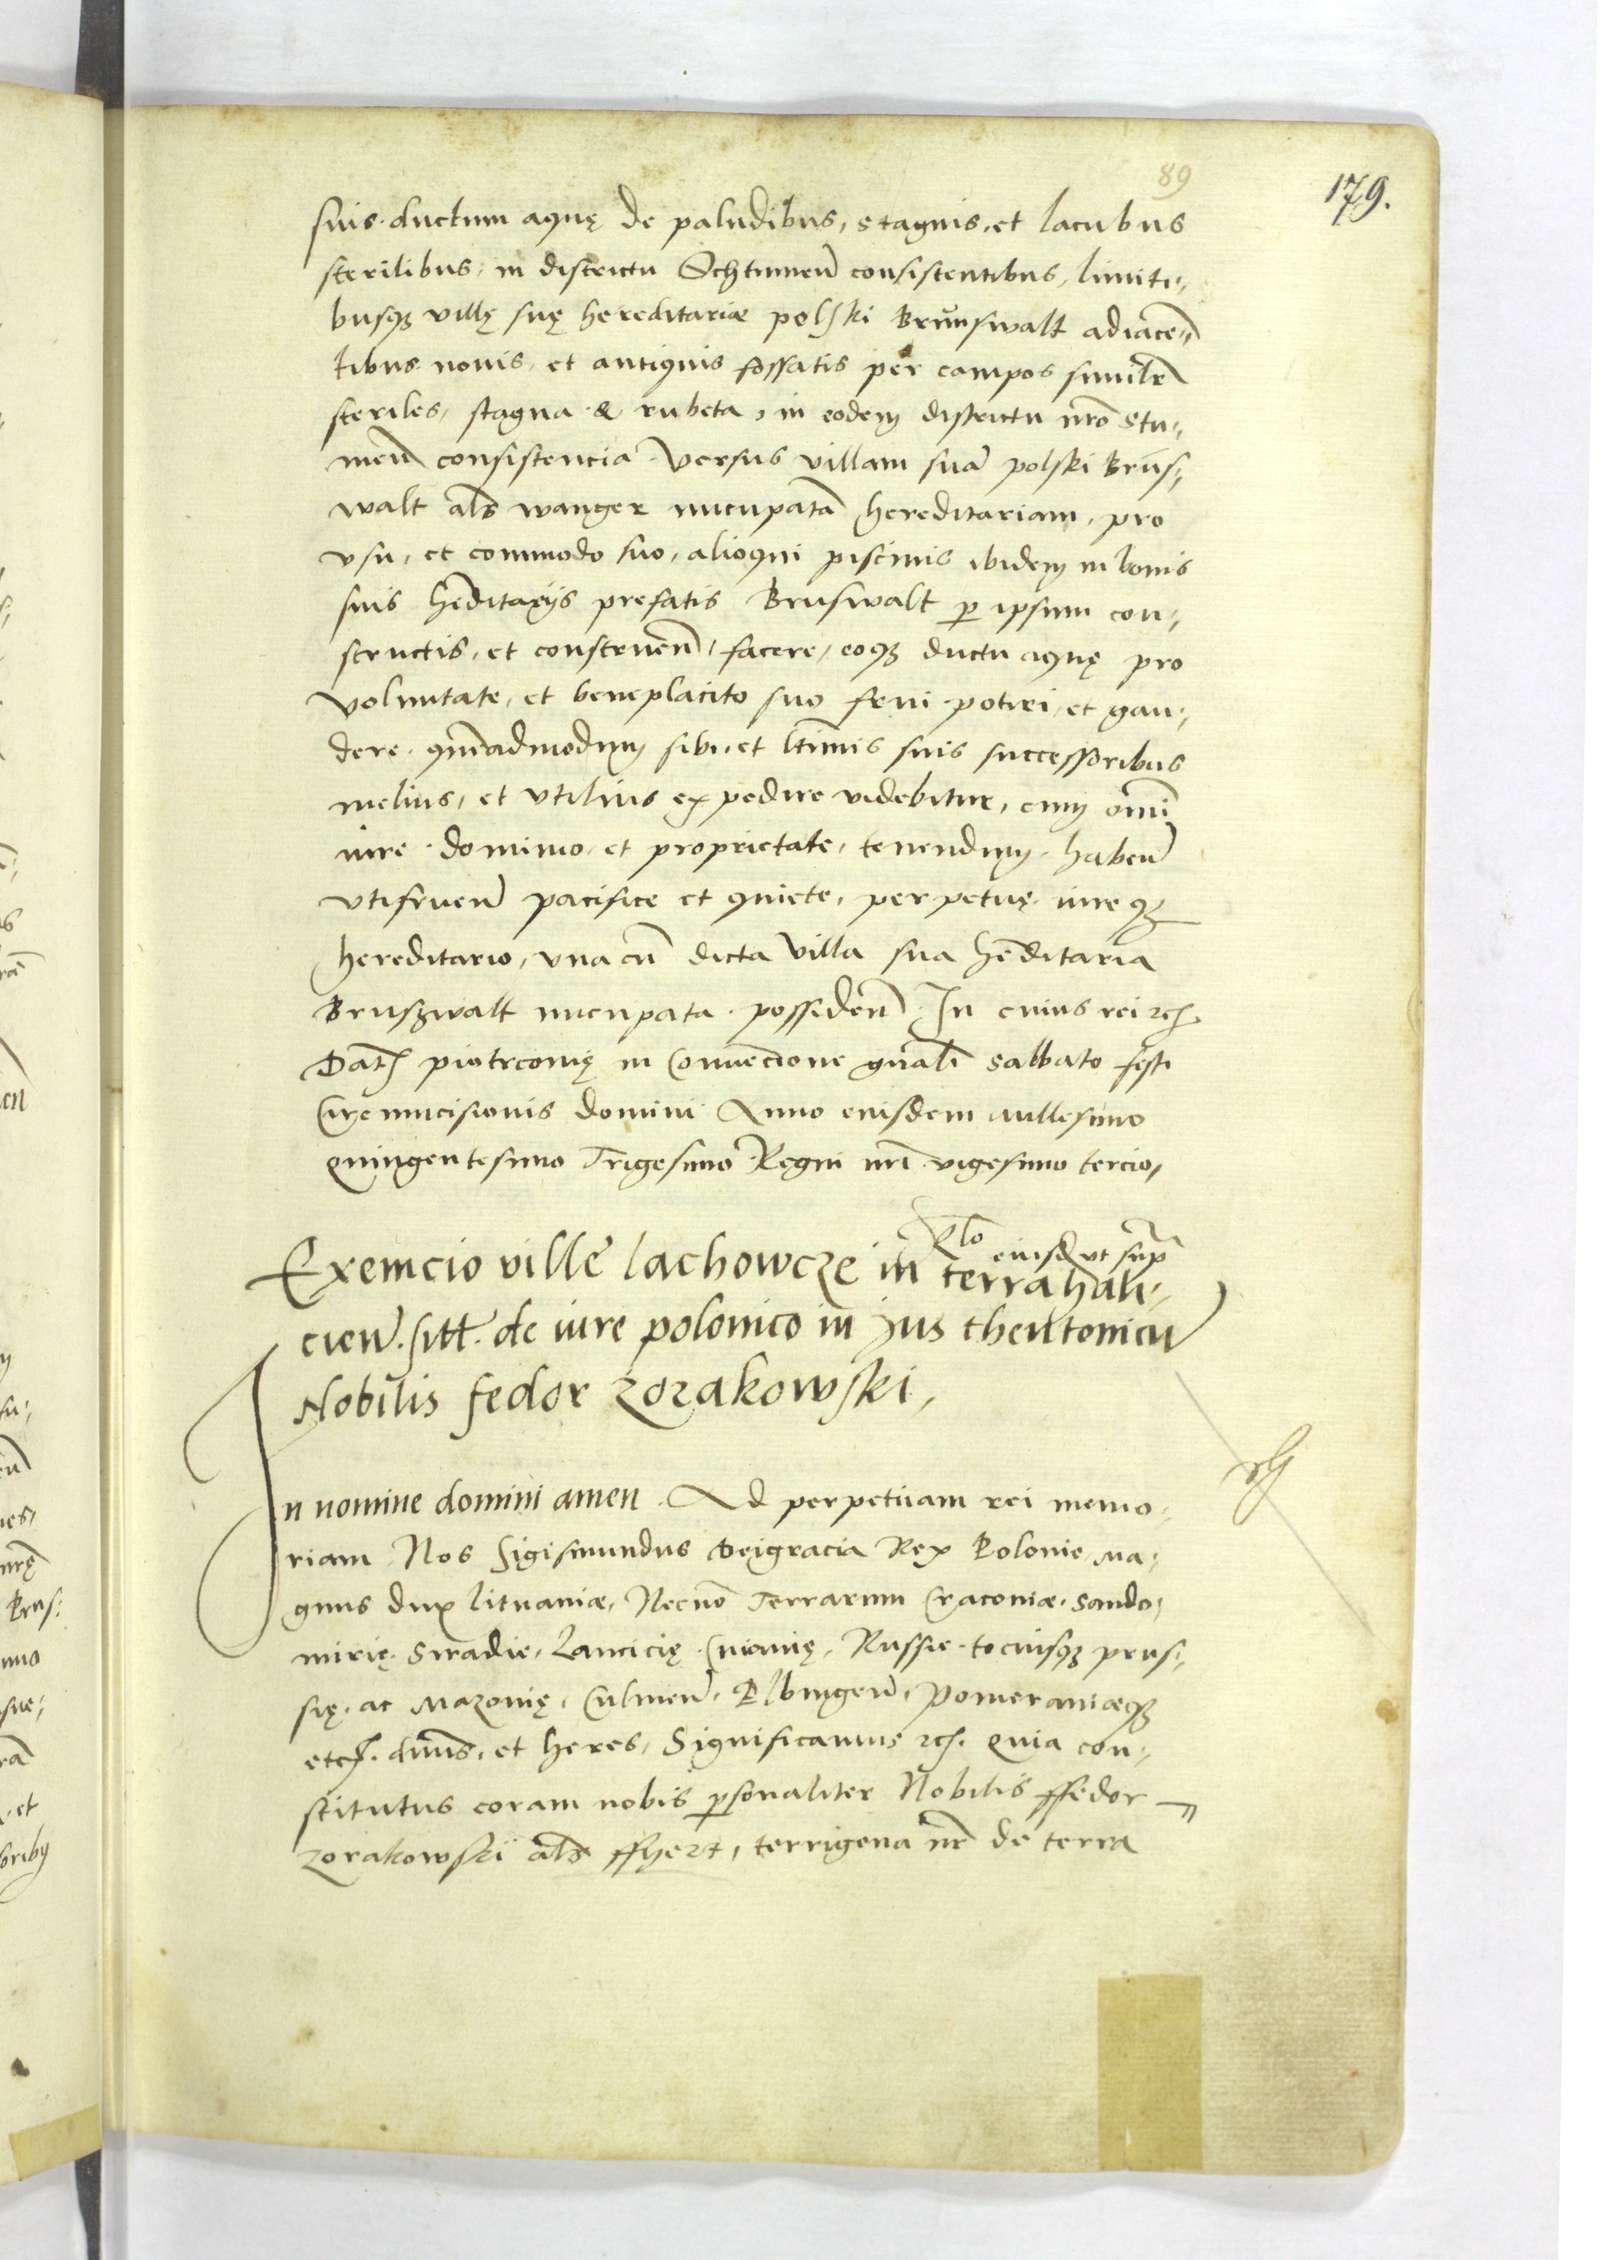 89
179.
suis. ductum aquę de paludibus, stagnis, et lacubus
sterilibus, in districtu Schtumeñ consistentibus, limiti,,
busq3 villę suę hereditariæ polski Brunswalt adiaceñ,,
tibus novis, et antiquis fossatis per campos similr̃
steriles, stagna & rubeta, in eodem districtu nr̃o Stu,,
meñ consistencia versus villam suã polski Brũs,,
walt als̃ wanger nũcupatã hereditariam, pro
vsu, et commodo suo, alioqui piscinis ibidem in bonis
suis her̃ditarijs prefatis Bruswalt p̱ ipsum con,,
structis, et construeñ, facere, eoq3 ductu aquę pro
voluntate, et beneplacito suo frui potiri, et gau,
dere. quẽadmodum sibi et ltĩmis suis successoribus
melius, et vtilius expedire videbitur, cum om̃i
iure dominio, et proprietate, tenendum, habeñ
vtifrueñ pacifice et quiete, perpetuę iureq3
hereditario, vna cũ dicta villa sua her̃ditaria
Bruszwalt nũcupata possideñ In cuius rei etc̃.
Dat̃ piotrconię in Convẽcione gñali sabbato festi
Circumcisionis domini Anno eiusdem millesimo
quingentesimo Trigesimo Regni nr̃i vigesimo tercio,
Rl̃o
eiusd̃ vt sup̃
Exemcio ville lachowcze in terra hali,,
cieñ. sitt̃. de iure polonico in jus theutonicũ
Nobilis fedor zorakowski,
In nomine domini amen. Ad perpetuam rei memo,
riam Nos Sigismundus Deigracia Rex Polonie, Ma,
gnus dux lituaniæ, Necnõ Terrarum Cracoviæ, Sando,
mirię, Siradie, Lancicię, Cuiavię, Russie, tociusq3 prus,
się, ac Mazovię, Culmeñ, Elbingeñ, Pomeraniæq3
etc̃. dñus, et heres, Significamus etc̃. quia con,,
stitutus coram nobis p̱sonaliter Nobilis ffedor
zorakowski als̃ ffhert, terrigena nr̃ de terra